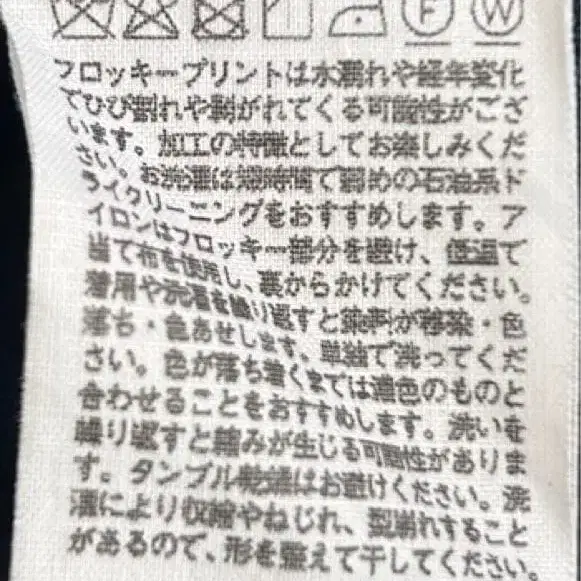 F W
フロッキープリントは水濡れや経年変化
でひび割れや剥がれてくる可能性がござ
います。加工の特徴としてお楽しみくだ
さい。お洗濯は短時間で弱めの石油系ド
ライクリーニングをおすすめします。ア
イロンはフロッキー部分を避け、低温で
当て布を使用し、裏からかけてください。
着用や洗濯を繰り返すと染料が移染・色
落ち・色あせします。単独で洗ってくだ
さい。色が落ち着くまでは濃色のものと
合わせることをおすすめします。洗いを
繰り返すと縮みが生じる可能性がありま
す。タンブル乾燥はお避けください。洗
濯により収縮やねじれ、型崩れすること
があるので、形を整えて干してください。